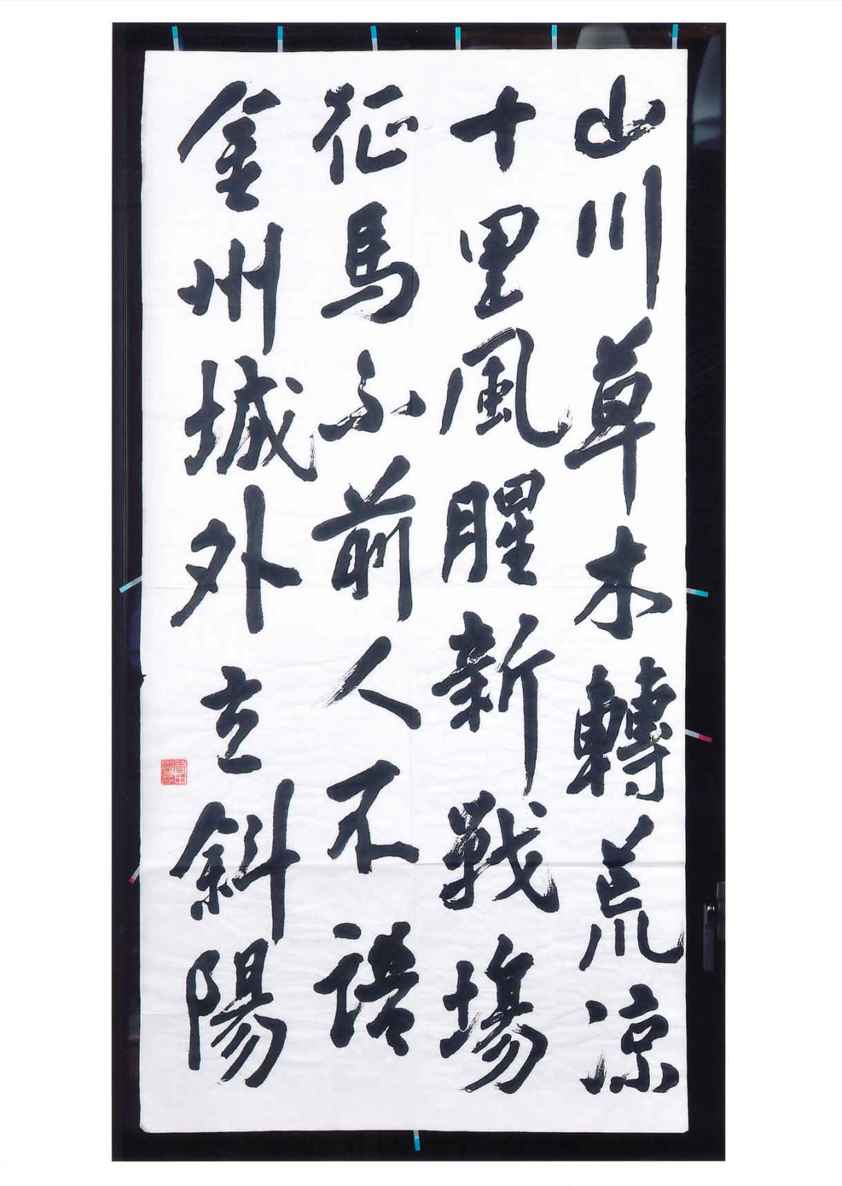 山川草木轉荒涼
十里風腥新戰場
征馬不前人不語
金州城外立斜陽